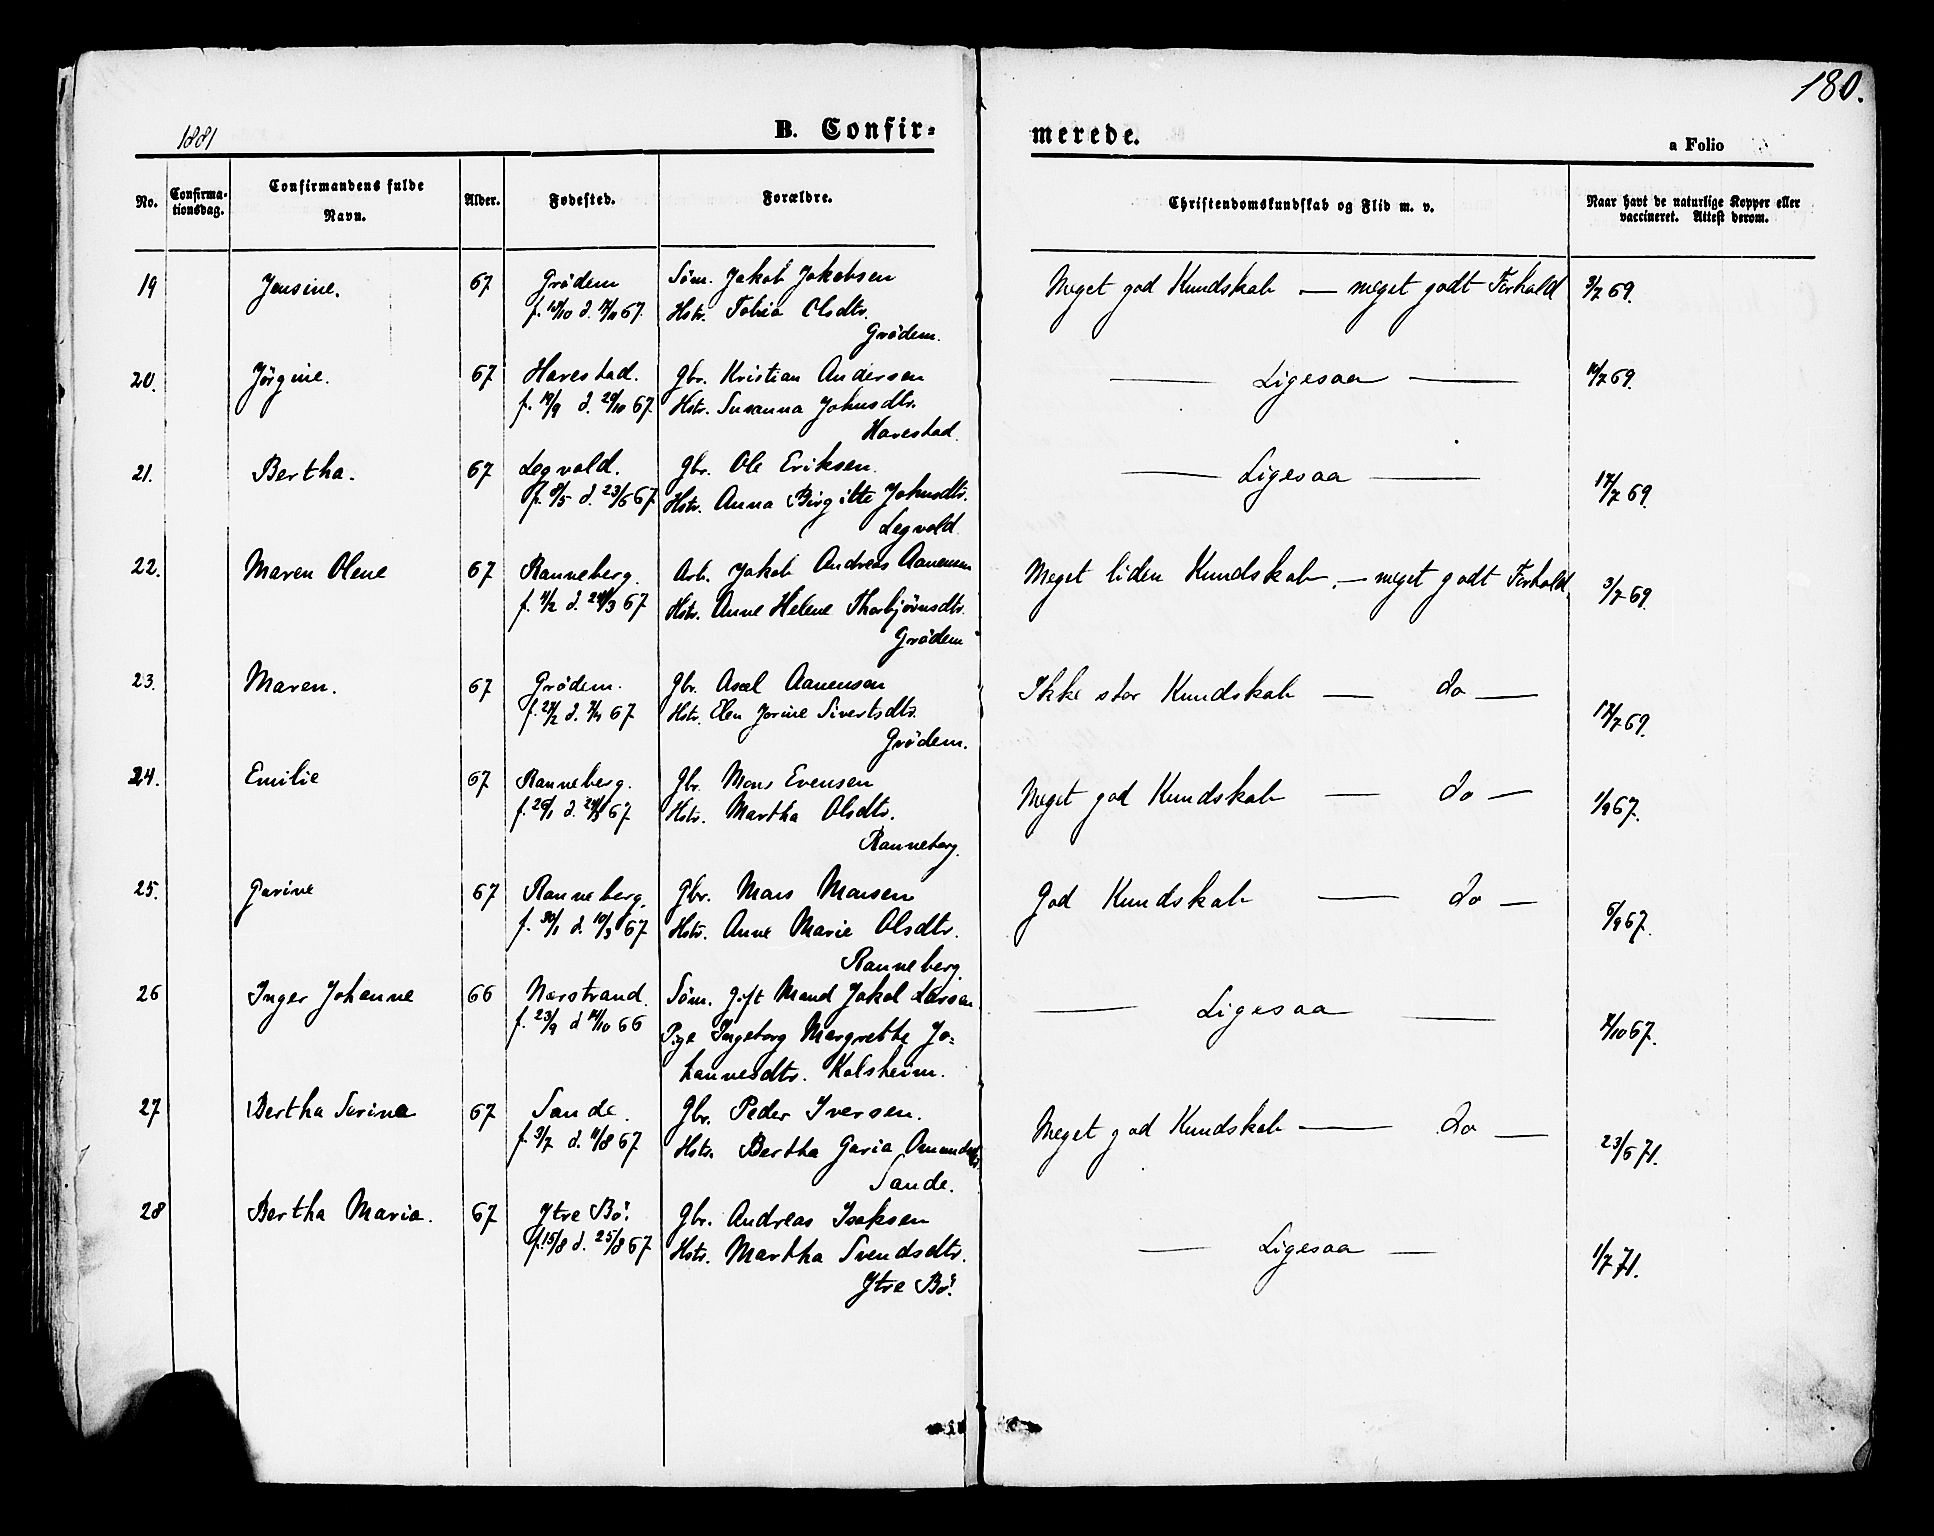 180.
1881
B. Confir-
merede.
a Folio
No.
Confirma-
tionsdag.
Confirmandens fulde
Navn.
Alder.
Fødested.
Forældre.
Christendomskundskab og Flid m. v.
Naar havt de naturlige Kopper eller
vaccineret. Attest derom.
19 Jensine. 67 Grödem Söm. Jakob Jakobsen Meget god Kundskab — meget godt Forhold 3/7 69.
Hstr. Tobia Olsdtr.
Grödem.
20. Jörgine. 67 Harestad. Gbr. Kristian Andersen — Ligesaa — 69.
f. 19/9 d. 20/10 67. Hstr. Susanna Johnsdtr.
Harestad.
21. Bertha. 67 Legvold. Gbr. Ole Eriksen. — Ligesaa — 17/7 69.
f. 8/5 d. 23/6 67. Hstr. Anna Birgitte Johnsdtr.
Legvold
22. Maren Olene 67 Ranneberg. Arb. Jakob Andreas Aanensen Meget liden Kundskab. — meget godt Forhold. 3/7 69.
f. 4/2 d. 24/3 67 Hstr. Anne Helene Thorbjörnsdtr.
Grödem
23. Maren. 67 Grödem. Gbr. Axel Aanensen Ikke stor Kundskab — do — 17/7 69.
67 Hstr. Elen Jorine Sivertsdtr.
Grödem.
24. Emilie 67 Ranneberg. Gbr. Mons Evensen Meget god Kundskab — do — 1/9 67.
f. 26/1 d. 24/3 67 Hstr. Martha Olsdtr.
Ranneberg.
25. Garine 67 Ranneberg. Gbr. Mons Monsen God Kundskab — do — 67.
f. 30/1 d. 10/3 67 Hstr. Anne Marie Olsdtr.
Ranneberg.
26 Inger Johanne 66 Nerstrand. Söm. gift Mand Jakob Larsen — Ligesaa — 67.
f. 23/9 d 14/10 66 Pige Ingeborg Margrethe Jo-
hannesdtr. Kalsheim.
27 Bertha Serine 67 Sande. Gbr. Peder Iversen. Meget god Kundskab — do — 23/6 71.
f. 3/7 d. 11/8 67 Hstr. Bertha Garia
Sande.
28 Bertha Maria. 67 Ytre Bö. Gbr. Andreas Isaksen — Ligesaa — 1/7 71.
f. 15/8 d. 25/8 67 Hstr. Martha Svendsdtr.
Ytre Bö.